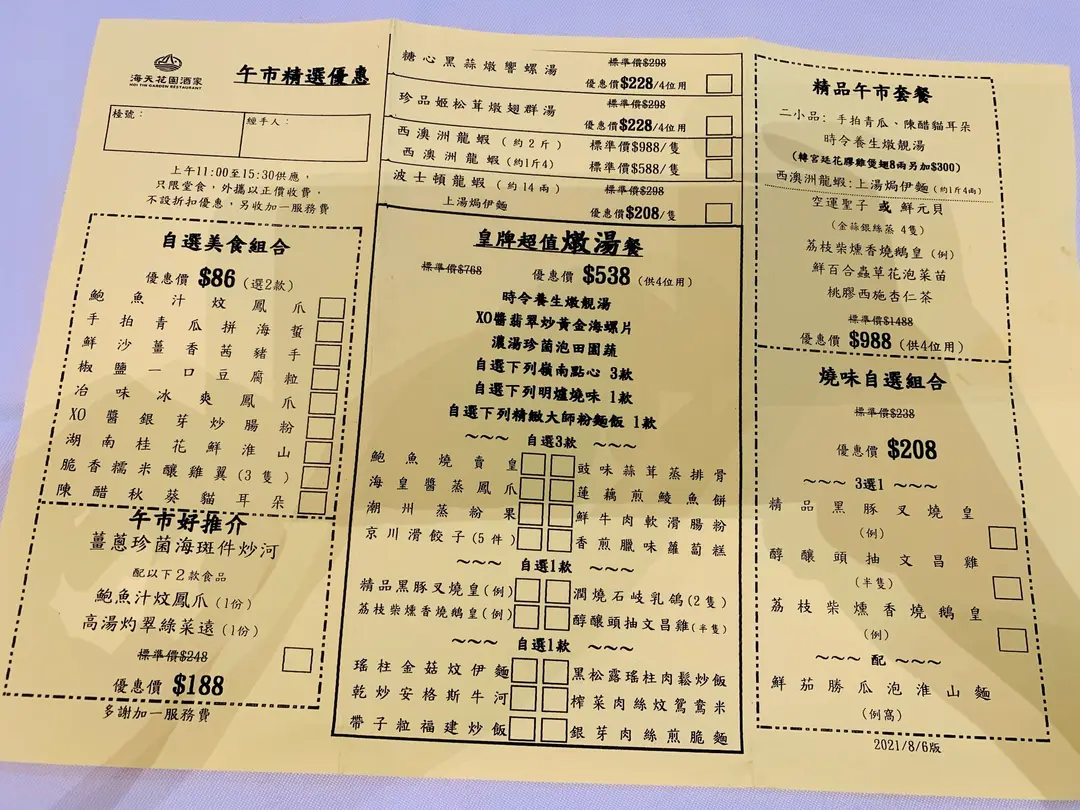 海天花園酒家
HOI TIN GARDEN RESTAURANT
午市精選優惠
檯號：
經手人：
上午11:00至15:30供應，
只限堂食，外攜以正價收費，
不設折扣優惠，另收加一服務費
自選美食組合
優惠價 $86 (選2款)
鮑魚汁炆鳳爪
手拍青瓜拼海蜇
鮮沙薑香茜豬手
椒鹽一口豆腐粒
冶味冰爽鳳爪
XO醬銀芽炒腸粉
湖南桂花鮮淮山
脆香糯米釀雞翼(3隻)
陳醋秋葵貓耳朵
午市好推介
薑蔥珍菌海斑件炒河
配以下2款食品
鮑魚汁炆鳳爪(1份)
高湯灼翠綠菜遠(1份)
標準價$248
優惠價 $188
多謝加一服務費
糖心黑蒜燉響螺湯
標準價$298
優惠價$228/4位用
珍品姬松茸燉翅群湯
標準價$298
優惠價$228/4位用
西澳洲龍蝦(約2斤) 標準價$988/隻
西澳洲龍蝦(約1斤4) 標準價$588/隻
波士頓龍蝦(約14兩)
標準價$298
上湯焗伊麵
優惠價$208/隻
皇牌超值燉湯餐
標準價$768 優惠價 $538 (供4位用)
時令養生燉靚湯
XO醬翡翠炒黃金海螺片
濃湯珍菌泡田園蔬
自選下列嶺南點心 3款
自選下列明爐燒味 1款
自選下列精緻大師粉麵飯 1款
~~~ 自選3款 ~~~
鮑魚燒賣皇 豉味蒜茸蒸排骨
海皇醬蒸鳳爪 蓮藕煎鯪魚餅
潮州蒸粉果 鮮牛肉軟滑腸粉
京川滑餃子(5件) 香煎臘味蘿蔔糕
~~~ 自選1款 ~~~
精品黑豚叉燒皇(例) 潤燒石岐乳鴿(2隻)
荔枝柴燻香燒鵝皇(例) 醇釀頭抽文昌雞(半隻)
~~~ 自選1款 ~~~
瑤柱金菇炆伊麵 黑松露瑤柱肉鬆炒飯
乾炒安格斯牛河 榨菜肉絲炆鴛鴦米
帶子粒福建炒飯 銀芽肉絲煎脆麵
精品午市套餐
二小品：手拍青瓜、陳醋貓耳朵
時令養生燉靚湯
(轉宮廷花膠雞煲翅8兩另加$300)
西澳洲龍蝦：上湯焗伊麵(約1斤4兩)
空運聖子 或 鮮元貝
(金蒜銀絲蒸 4隻)
荔枝柴燻香燒鵝皇(例)
鮮百合蟲草花泡菜苗
桃膠西施杏仁茶
標準價$1488
優惠價 $988 (供4位用)
燒味自選組合
標準價$238
優惠價 $208
~~~ 3選1 ~~~
精品黑豚叉燒皇
(例)
醇釀頭抽文昌雞
(半隻)
荔枝柴燻香燒鵝皇
(例)
~~~ 配 ~~~
鮮茄勝瓜泡淮山麵
(例窩)
2021/8/6版